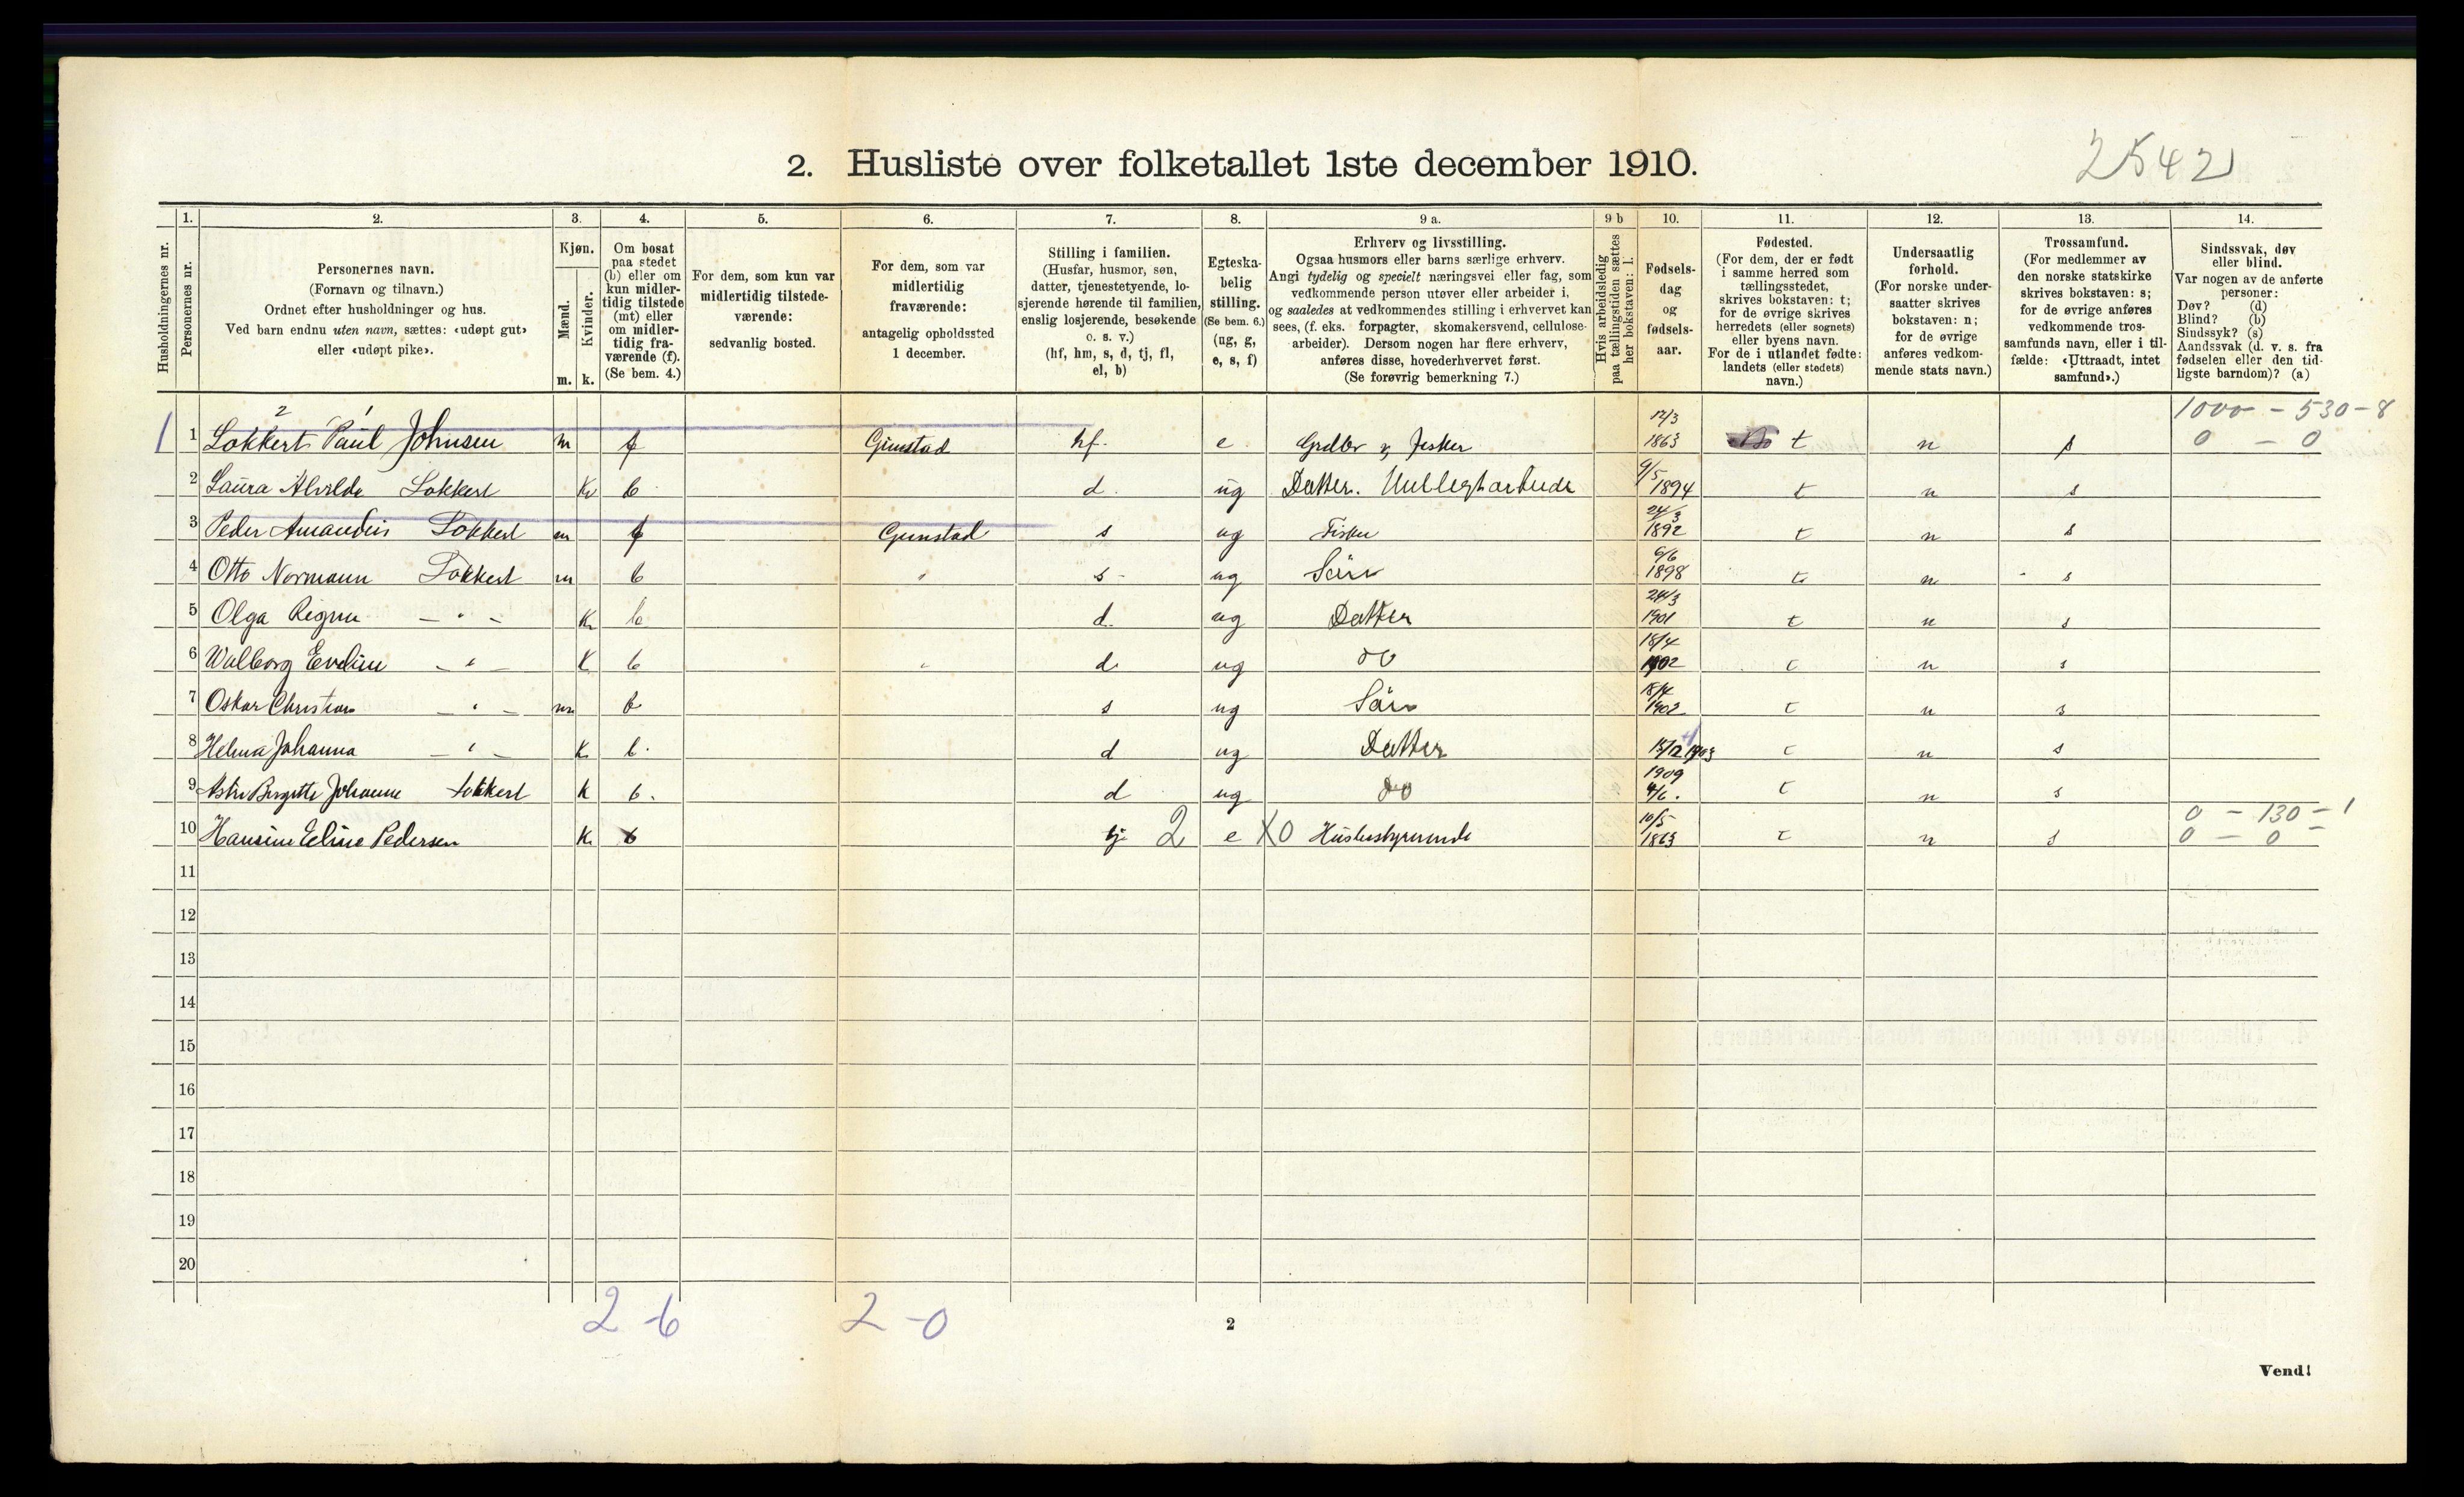 2. Husliste over folketallet 1ste december 1910.
2542
1. 2. 3. 4. 5. 6. 7. 8. 9 a. 9 b 10. 11. 12. 13. 14.
Husholdningernes nr.
Personernes nr.
Personernes navn.
(Fornavn og tilnavn.)
Ordnet efter husholdninger og hus.
Ved barn endnu uten navn, sættes: «udøpt gut»
eller «udøpt pike».
Kjøn.
Mænd.
Kvinder.
m. k.
Om bosat
paa stedet
(b) eller om
kun midler-
tidig tilstede
(mt) eller
om midler-
tidig fra-
værende (f).
(Se bem. 4.)
For dem, som kun var
midlertidig tilstede-
værende:
sedvanlig bosted.
For dem, som var
midlertidig
fraværende:
antagelig opholdssted
1 december.
Stilling i familien.
(Husfar, husmor, søn,
datter, tjenestetyende, lo-
sjerende hørende til familien,
enslig losjerende, besøkende
o. s. v.)
(hf, hm, s, d, tj, fl,
el, b)
Egteska-
belig
stilling.
(Se bem. 6.)
(ug, g,
e, s, f)
Erhverv og livsstilling.
Ogsaa husmors eller barns særlige erhverv.
Angi tydelig og specielt næringsvei eller fag, som
vedkommende person utøver eller arbeider i,
og saaledes at vedkommendes stilling i erhvervet kan
sees, (f. eks. forpagter, skomakersvend, cellulose-
arbeider). Dersom nogen har flere erhverv,
anføres disse, hovederhvervet først.
(Se forøvrig bemerkning 7.)
Hvis arbeidsledig
paa tællingstiden sættes
her bokstaven: l.
Fødsels-
dag
og
fødsels-
aar.
Fødested.
(For dem, der er født
i samme herred som
tællingsstedet,
skrives bokstaven: t;
for de øvrige skrives
herredets (eller sognets)
eller byens navn.
For de i utlandet fødte:
landets (eller stedets)
navn.)
Undersaatlig
forhold.
(For norske under-
saatter skrives
bokstaven: n;
for de øvrige
anføres vedkom-
mende stats navn.)
Trossamfund.
(For medlemmer av
den norske statskirke
skrives bokstaven: s;
for de øvrige anføres
vedkommende tros-
samfunds navn, eller i til-
fælde: «Uttraadt, intet
samfund».)
Sindssvak, døv
eller blind.
Var nogen av de anførte
personer:
Døv? (d)
Blind? (b)
Sindssyk? (s)
Aandssvak (d. v. s. fra
fødselen eller den tid-
ligste barndom)? (a)
2 1 17/3 1000 - 530 - 8
1 1 Lokkert Paul Johnsen m f Gimstad hf. e 1863 t n s 0 - 0
2 Laura Alvilde Lokkert K b d. ug Datter. 9/5 1894 t n s
3 Peder Amandus Lokkert m f Gimstad s ug Fisker 24/3 1892 t n s
4 Otto Normann Lokkert m b s ug Sön 6/6 1898 t n s
5 Olga Regine - " - K b d. ug Datter 24/3 1901 t n s
6 Walborg Eveline - " - K b d ug do 18/4 1902 t n s
7 Oskar Christian - " - m b s ug Sön 18/4 1902 t n s
8 Helma Johanna - " - K b. d ug Datter 15/12 1903 t n s
9 Birgitte Johanne Lokkert K b. d ug do 1909 4/6. t n s
10 Hansine Eeline Pedersen K b tj 2 e X0 Husbestyrerinde 10/5 1863 t n s 0 - 130 - 1
0 - 0 -
11
12
13
14
15
16
17
18
19
20
2 - 6 2 - 0
2
Vend!